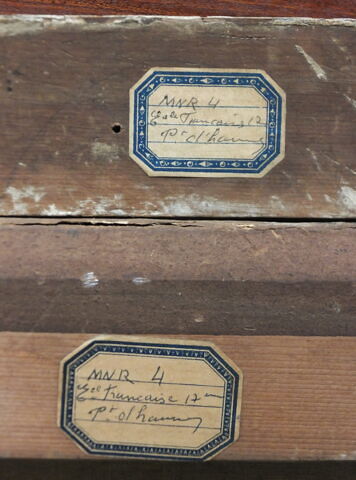 MNR 4
Ecole Francaise 17
Pt d'homme
MNR 4
Ecole Francaise 17 em
Pt d'homme